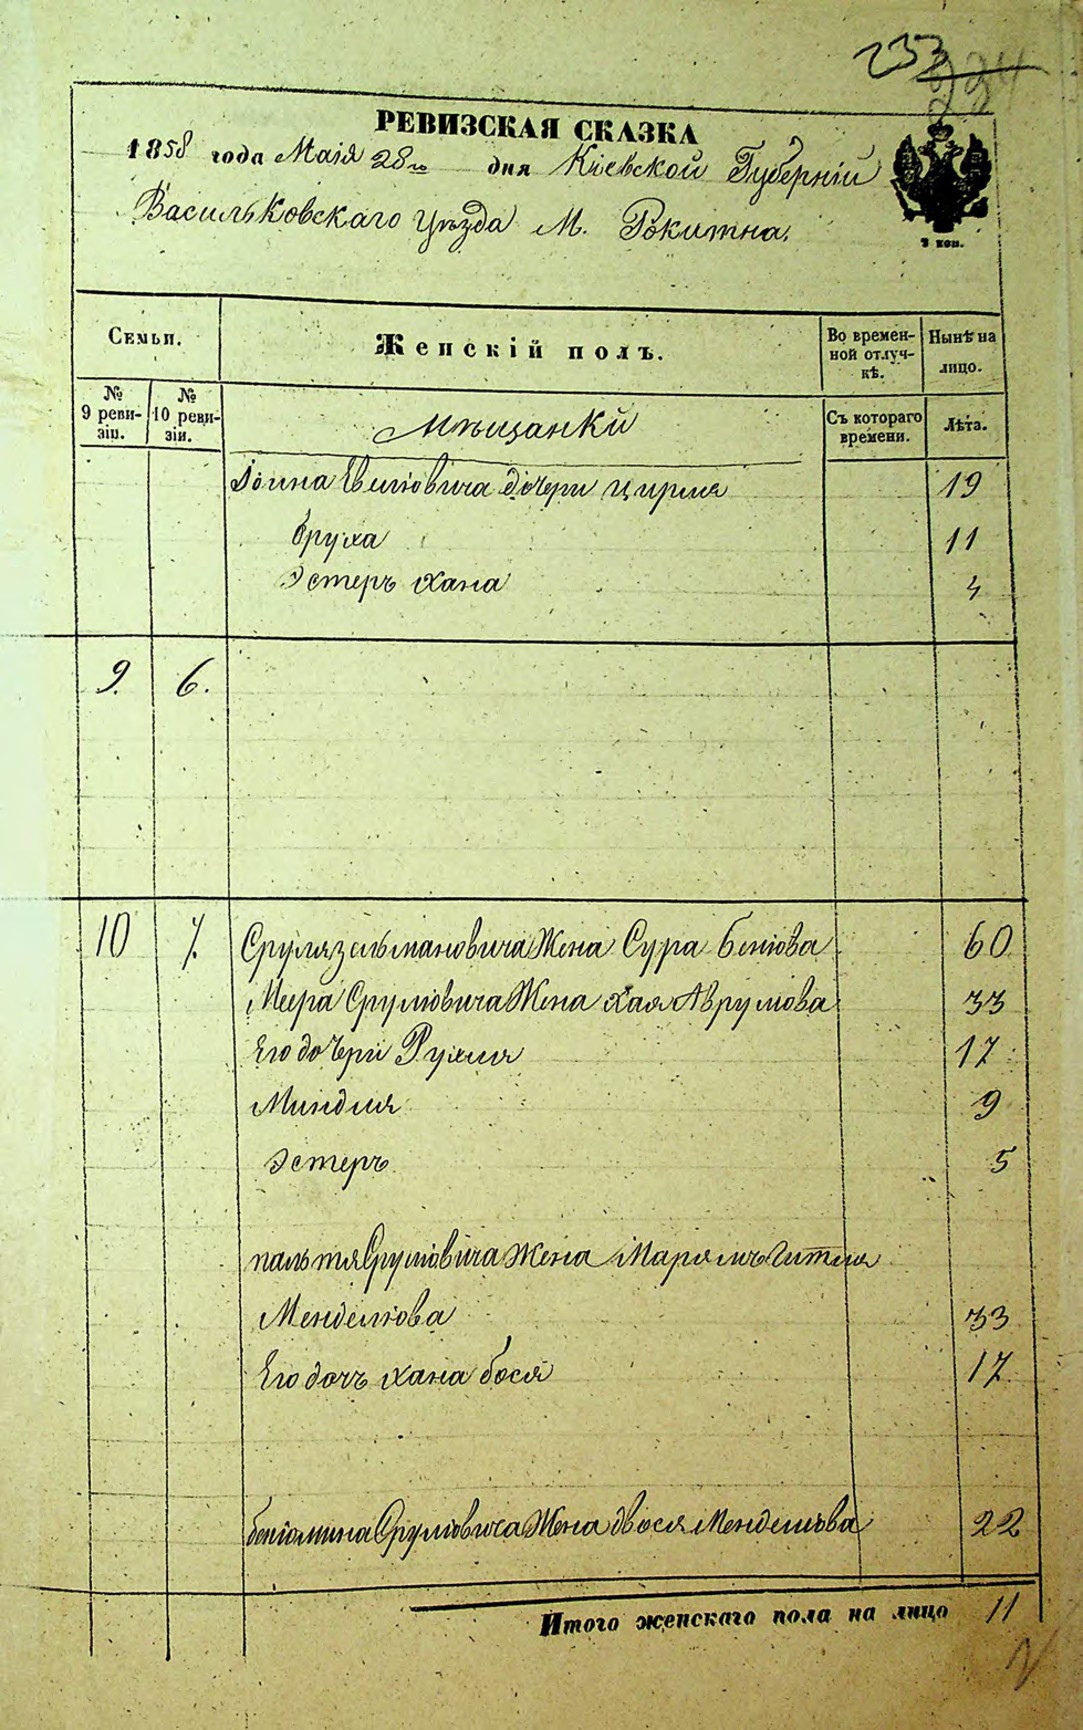 253
224
РЕВИЗСКАЯ СКАЗКА
1858 года Маія 28го дня Кіевской Губерніи
Васильковскаго Уѣзда М. Рокитна.
3 коп.
Семьи.
Женскій полъ.
Во времен-
ной отлуч-
кѣ.
Нынѣ на
лицо.
№
9 реви-
зіи.
№
10 реви-
зіи.
Мѣщанки
Съ котораго
времени.
Лѣта.
дочери Цирля 19
Бруха 11
Эстеръ Хана 4
9. 6.
10 7. Сруля Зельмановича Жена Сура Беніова 60
Меера Срулювича Жена Хая Аврумова 33
Его дочери Рухля 17
Миндля 9
Эстеръ 5
Пальтя Срулювича Жена Марямъ Гитля
Менделюва 33
Его дочь Хана Бося 17
Беніомина Срулювича Жена Двося Менделюва 22
Итого женскаго пола на лицо 11